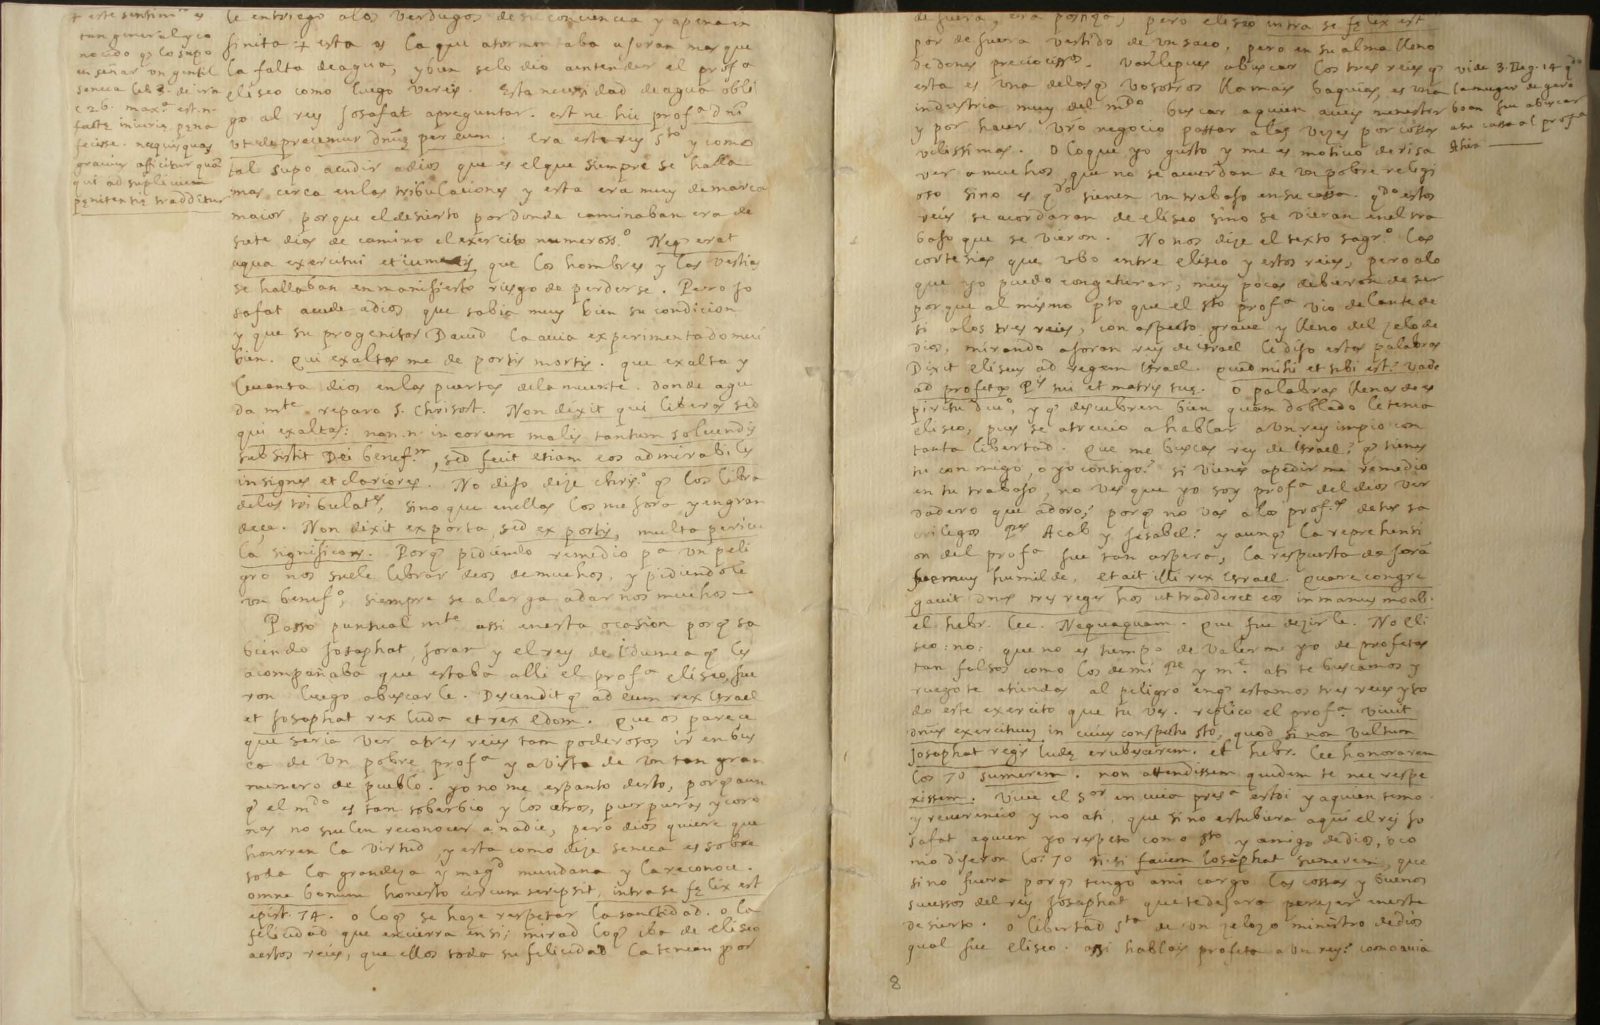 + este sentim.º es
tan general y co
nocido q̃ lo supo
enseñar un gentil
seneca lib. 3. de ira
c 26. max.ª est n.
factę iniurię pęna
fecisse. nec quisquaʒ
gravius afficitur quã
qui ad supliciuʒ
pęnitentię traditur
le entriego a los verdugos de su conciencia y a pena in
finita + esta es la que atormentaba a Joran mas que
la falta de agua, y bien se lo dio a entender el prof.ª
eliseo como luego vereis. Esta necessidad de agua obli
go al rey Josafat a preguntar. est ne hic prof.ª dñi
ut deprecemur dnũ per eum. Era este rey s.to y como
tal supo acudir a dios que es el que siempre se halla
mas cerca en las tribulaciones y esta era muy de marca
maior porque el desierto por donde caminaban era de
siete dias de camino el exercito numeross.º Neq̃ erat
aqua exercitui et iumentis, que los hombres y las vestias
se hallaban en manifiesto riesgo de perderse. Pero Jo
safat acude a dios que sabia muy bien su condicion
y que su progenitor David la avia experimentado mui
bien. Qui exaltas me de portis mortis. que exalta y
levanta dios en las puertas de la muerte. donde agu
da m.te reparo S. Chrisost. Non dixit qui liberas sed
qui exaltas: non n. in eorum malis tantum solvendis
subsistit Dei benef.m, sed fecit etiam eos admirabiles
insignes et clariores. No dijo dije Chris.º q̃ los libra
de las tribulat.s, sino que en ellas los mejora y engran
deça. Non dixit ex porta, sed ex portis, multa pericu
la significans. Porq̃ pidiendo remedio p.ª un peli
gro nos suele librar dios de muchos, y pidiendole
un benef.º, siempre se alarga a darnos muchos —
Passo puntual m.te assi en esta ocasion porq̃ sa
biendo Josaphat, Joran y el rey de Idumea q̃ les
acompañaba que estaba alli el prof.ª eliseo, fue
ron luego a buscarle. Descendit q̃ ad eum rex Israel
et Josaphat rex Iuda et rex Edom. Que os parece
que seria ver a tres reies tam poderosos ir en bus
ca de un pobre prof.ª y a vista de un tan gran
numero de pueblo. yo no me espanto desto, porq̃ aun
q̃ el m.do es tan soberbio y los cetros, purpuras y coro
nas no suelen reconocer a nadie, pero dios quiere que
honrren la virtud y esta como dije seneca es sobre
toda la grandeza y mag.d mundana y la reconoce.
omne bonum honesto circum scripsit, intra se fęlix est
epist. 74. o loq̃ se haze respetar la santidad. o la
felicidad que encierra en si; mirad loq̃ iba de eliseo
a estos reies, que ellos toda su felicidad la tenian por
de fuera, era postiza, pero eliseo intra se fęlix est
por de fuera vestido de un saco, pero en su alma lleno
de dones preciociss.os. Van les pues a buscar los tres reies q̃
esta es una de las q̃ vosotros llamais baquias, es una
industria muy del m.do buscar a quien aveis menester
y por haver v̄ro negocio passar a las vezes por cossas
vilissimas. O lo que yo gusto y me es motivo de risa
ver a muchos, que no se acuerdan de un pobre religi
oso sino es q.do tienen un trabajo en su cassa. q.do estos
reies se acordaran de eliseo sino se vieran en el tra
bajo que se vieron. No nos dije el texto sagr.º las
cortesias que vbo entre eliseo y estos reies, pero a lo
que yo puedo congeturar, muy pocas debieron de ser
porque al mismo p.to que el s.to prof.ª vio delante de
si a los tres reies, con aspecto grave y lleno del zelo de
dios, mirando a Joran rey de Israel le dijo estas palabras
Dixit eliseus ad regem Israel. Quid mihi et tibi est? vade
ad profetas P.s tui et matris tuę. O palabras llenas de es
piritu div.º, y q̃ descubren bien quam doblado le tenia
eliseo, pues se atrevio a hablar a un rey impio con
tanta libertad. Que me buscas rey de Israel? q̃ tienes
tu con migo, o yo contigo? si vienes a pedir me remedio
en tu trabajo, no ves que yo soy prof.ª del dios ver
dadero que adoro? porq̃ no vas a los prof.s de tus sa
crilegos P.es Acab y Jesabel? y aunq̃ la reprehensi
on del prof.ª fue tan aspera, la respuesta de Jorã
fue muy humilde. Et ait illi rex Israel. Quare congre
gavit dñus tres reges hos ut tradderet eos in manus moab.
el hebr. lee. Nequaquam. Que fue dezirle. No Eli
seo: no: que no es tiempo de valerme yo de profetas
tan falsos como los de mi P.e y m.e. a ti te buscamos y
ruegote atiendas al peligro enq̃ estamos tres reies y to
do este exercito que tu ves. replico el prof.ª vivit
dñus exercituuʒ in cuius conspectu sto, quod si non vultum
Josaphat regis Iudę erubescerem. et hebr. lee honorarem
los 70 sumerem. non attendissem quidem te nec respe
xissem. Vive el s.or en cuia pres.ª estoi y a quien temo
y reverencio y no a ti, que si no estubiera aqui el rey Jo
safat a quien yo respeto como s.to y amigo de dios, o co
mo dijeron los 70 ni si faciem Josaphat sumerem, que
si no fuera porq̃ tengo a mi cargo las cossas y buenos
sucessos del rey Josaphat que te dejara perezer en este
desierto. O libertad s.ta de un zelozo ministro de dios
qual fue eliseo. assi hablais profeta a un rey? como avia
vide 3. Reg. 14 q.do
la muger de gero
boan fue a buscar
a su cassa al prof.ª
Ahia
8